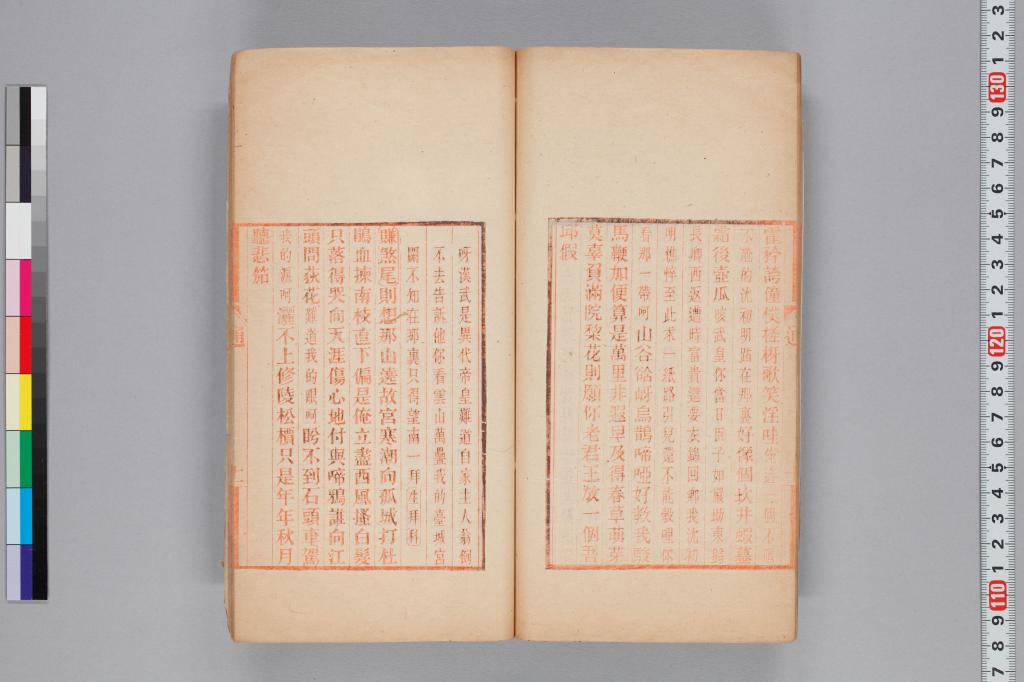 霍矜誇僮僕槎枒歌笑淫哇
不濟的沈初明跡在那裏好像個坎井蝦蟇
霜後壺瓜咳武皇你當日田子如儂助東歸
長卿西返遭時富貴還要衣錦回鄉我沈初
明憔悴至此求一紙路引兒還不能彀哩你
看那一帶呵山谷谽岈烏鵲啼啞好教我醉
馬鞭加便算是萬里非遐早及得春草萌芽
莫辜負滿院梨花則願你老君王放一個吾
邱假
呀漢武是異代帝皇難道自家主人翁倒
不去告訴他你看雲山萬疊我的臺城宮
闕不知在那裏只得望南一拜生拜科
賺煞尾則想那山遶故宮寒潮向孤城打杜
鵑血揀南枝直下偏是俺立盡西風搔白髮
只落得哭向天涯傷心地付與啼鴉誰向江
頭問荻花難道我的眼呵盻不到石頭車駕
我的淚呵灑不上修陵松檟只是年年秋月
聽悲笳